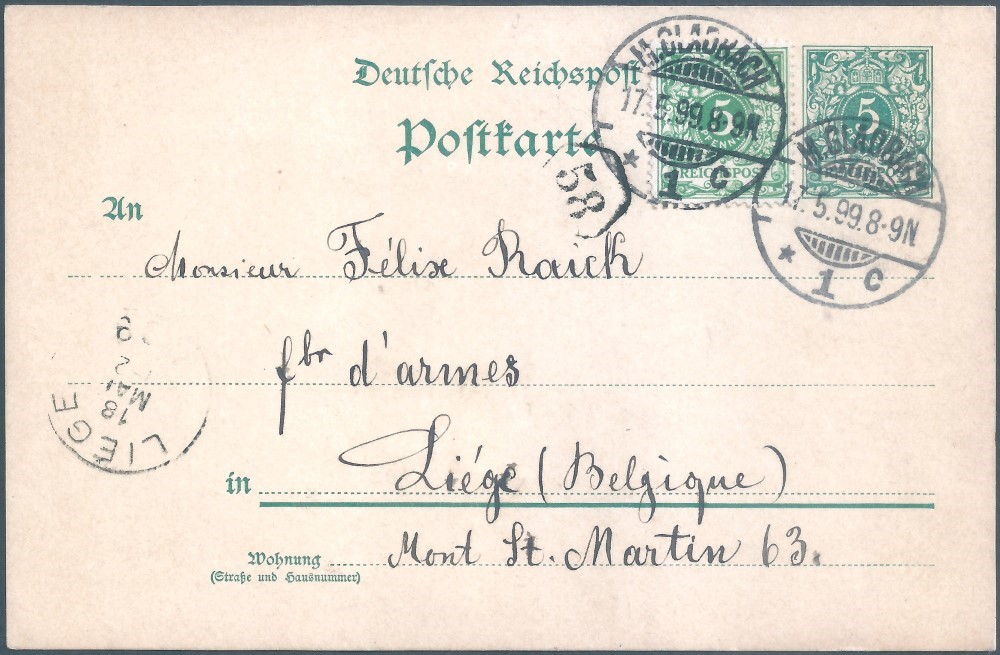 Deutsche Reichspost
Postkarte
M.GLADBACH
17.5.99.8-9N
* 1 c
5
REICHSPOST
M.GLADBACH
17.5.99.8-9N
* 1 c
5
58
An
Monsieur Félix Raick
fbr d'armes
in Liége (Belgique)
Mont St. Martin 63.
Wohnung
(Straße und Hausnummer)
LIEGE
18
MAI